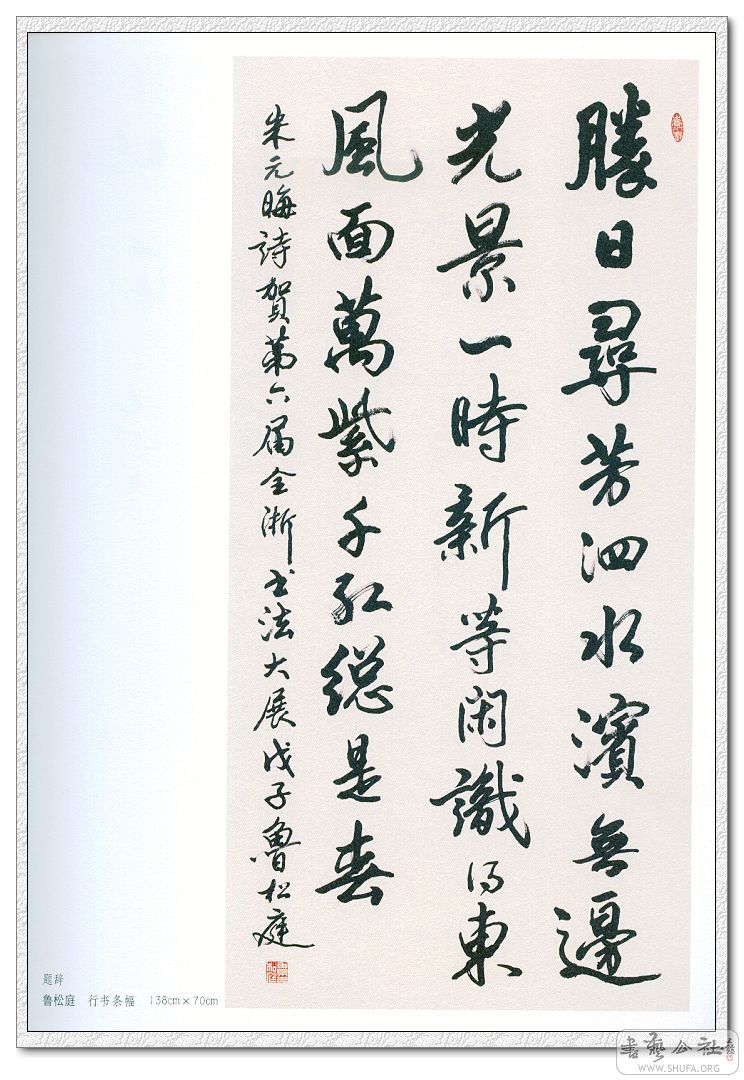 勝日尋芳泗水濱無邊
光景一時新等闲識得東
風面萬紫千紅總是春
朱元晦詩賀第六届全浙书法大展戊子魯松庭
题辞
鲁松庭 行书条幅 138cm×70cm
書藝公社
WWW.SHUFA.ORG